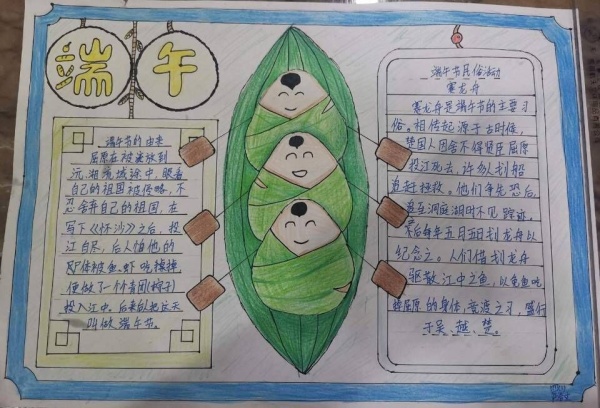 端午
端午节的由来
屈原在被流放到
沅湘流域途中,眼看
自己的祖国被侵略,不
忍舍弃自己的祖国,在
写下《怀沙》之后,投
江自尽,后人怕他的
肉体被鱼、虾吃掉,
便做下一个个青团(粽子)
投入江中。后来人把这天
叫做端午节。
端午节民俗活动
赛龙舟
赛龙舟是端午节的主要习
俗。相传起源于古时候,
楚国人因舍不得贤臣屈原
投江死去,许多人划船
追赶拯救。他们争先恐后,
追至洞庭湖时不见踪迹。
之后每年五月五日划龙舟以
纪念之。人们借划龙舟
驱散江中之鱼,以免鱼吃
掉屈原的身体,竞渡之习,盛行
于吴、越、楚。